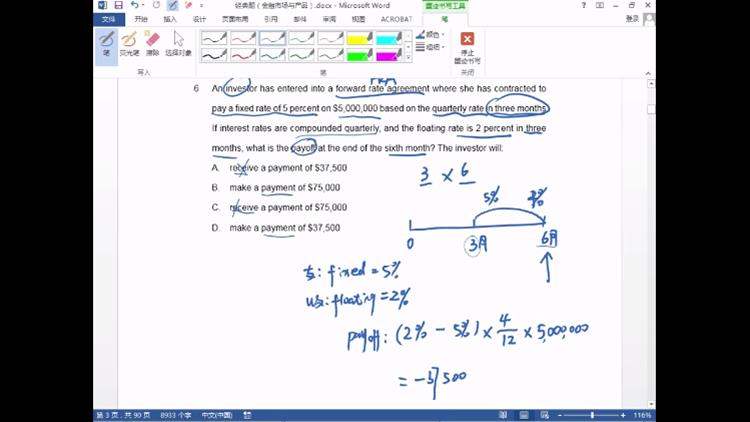 经典题(金融市场与产品).docx - Microsoft Word
墨迹书写工具
文件 开始 设计 页面布局 引用 邮件 审阅 视图 ACROBAT 笔
登录
笔 荧光笔 橡皮擦 选择对象
颜色
粗细
停止
墨迹书写
写入 笔 关闭
FRA
6 An investor has entered into a forward rate agreement where she has contracted to
pay a fixed rate of 5 percent on $5,000,000 based on the quarterly rate in three months.
If interest rates are compounded quarterly, and the floating rate is 2 percent in three
months, what is the payoff at the end of the sixth month? The investor will:
A. receive a payment of $37,500
B. make a payment of $75,000
C. receive a payment of $75,000
D. make a payment of $37,500
3 × 6
5% 2%
0 3月 6月
支: fixed = 5%
收: floating = 2%
payoff: (2% - 5%) × 4/12 × 5,000,000
= -37500
第 3 页,共 90 页 8933 个字 中文(中国) 116%